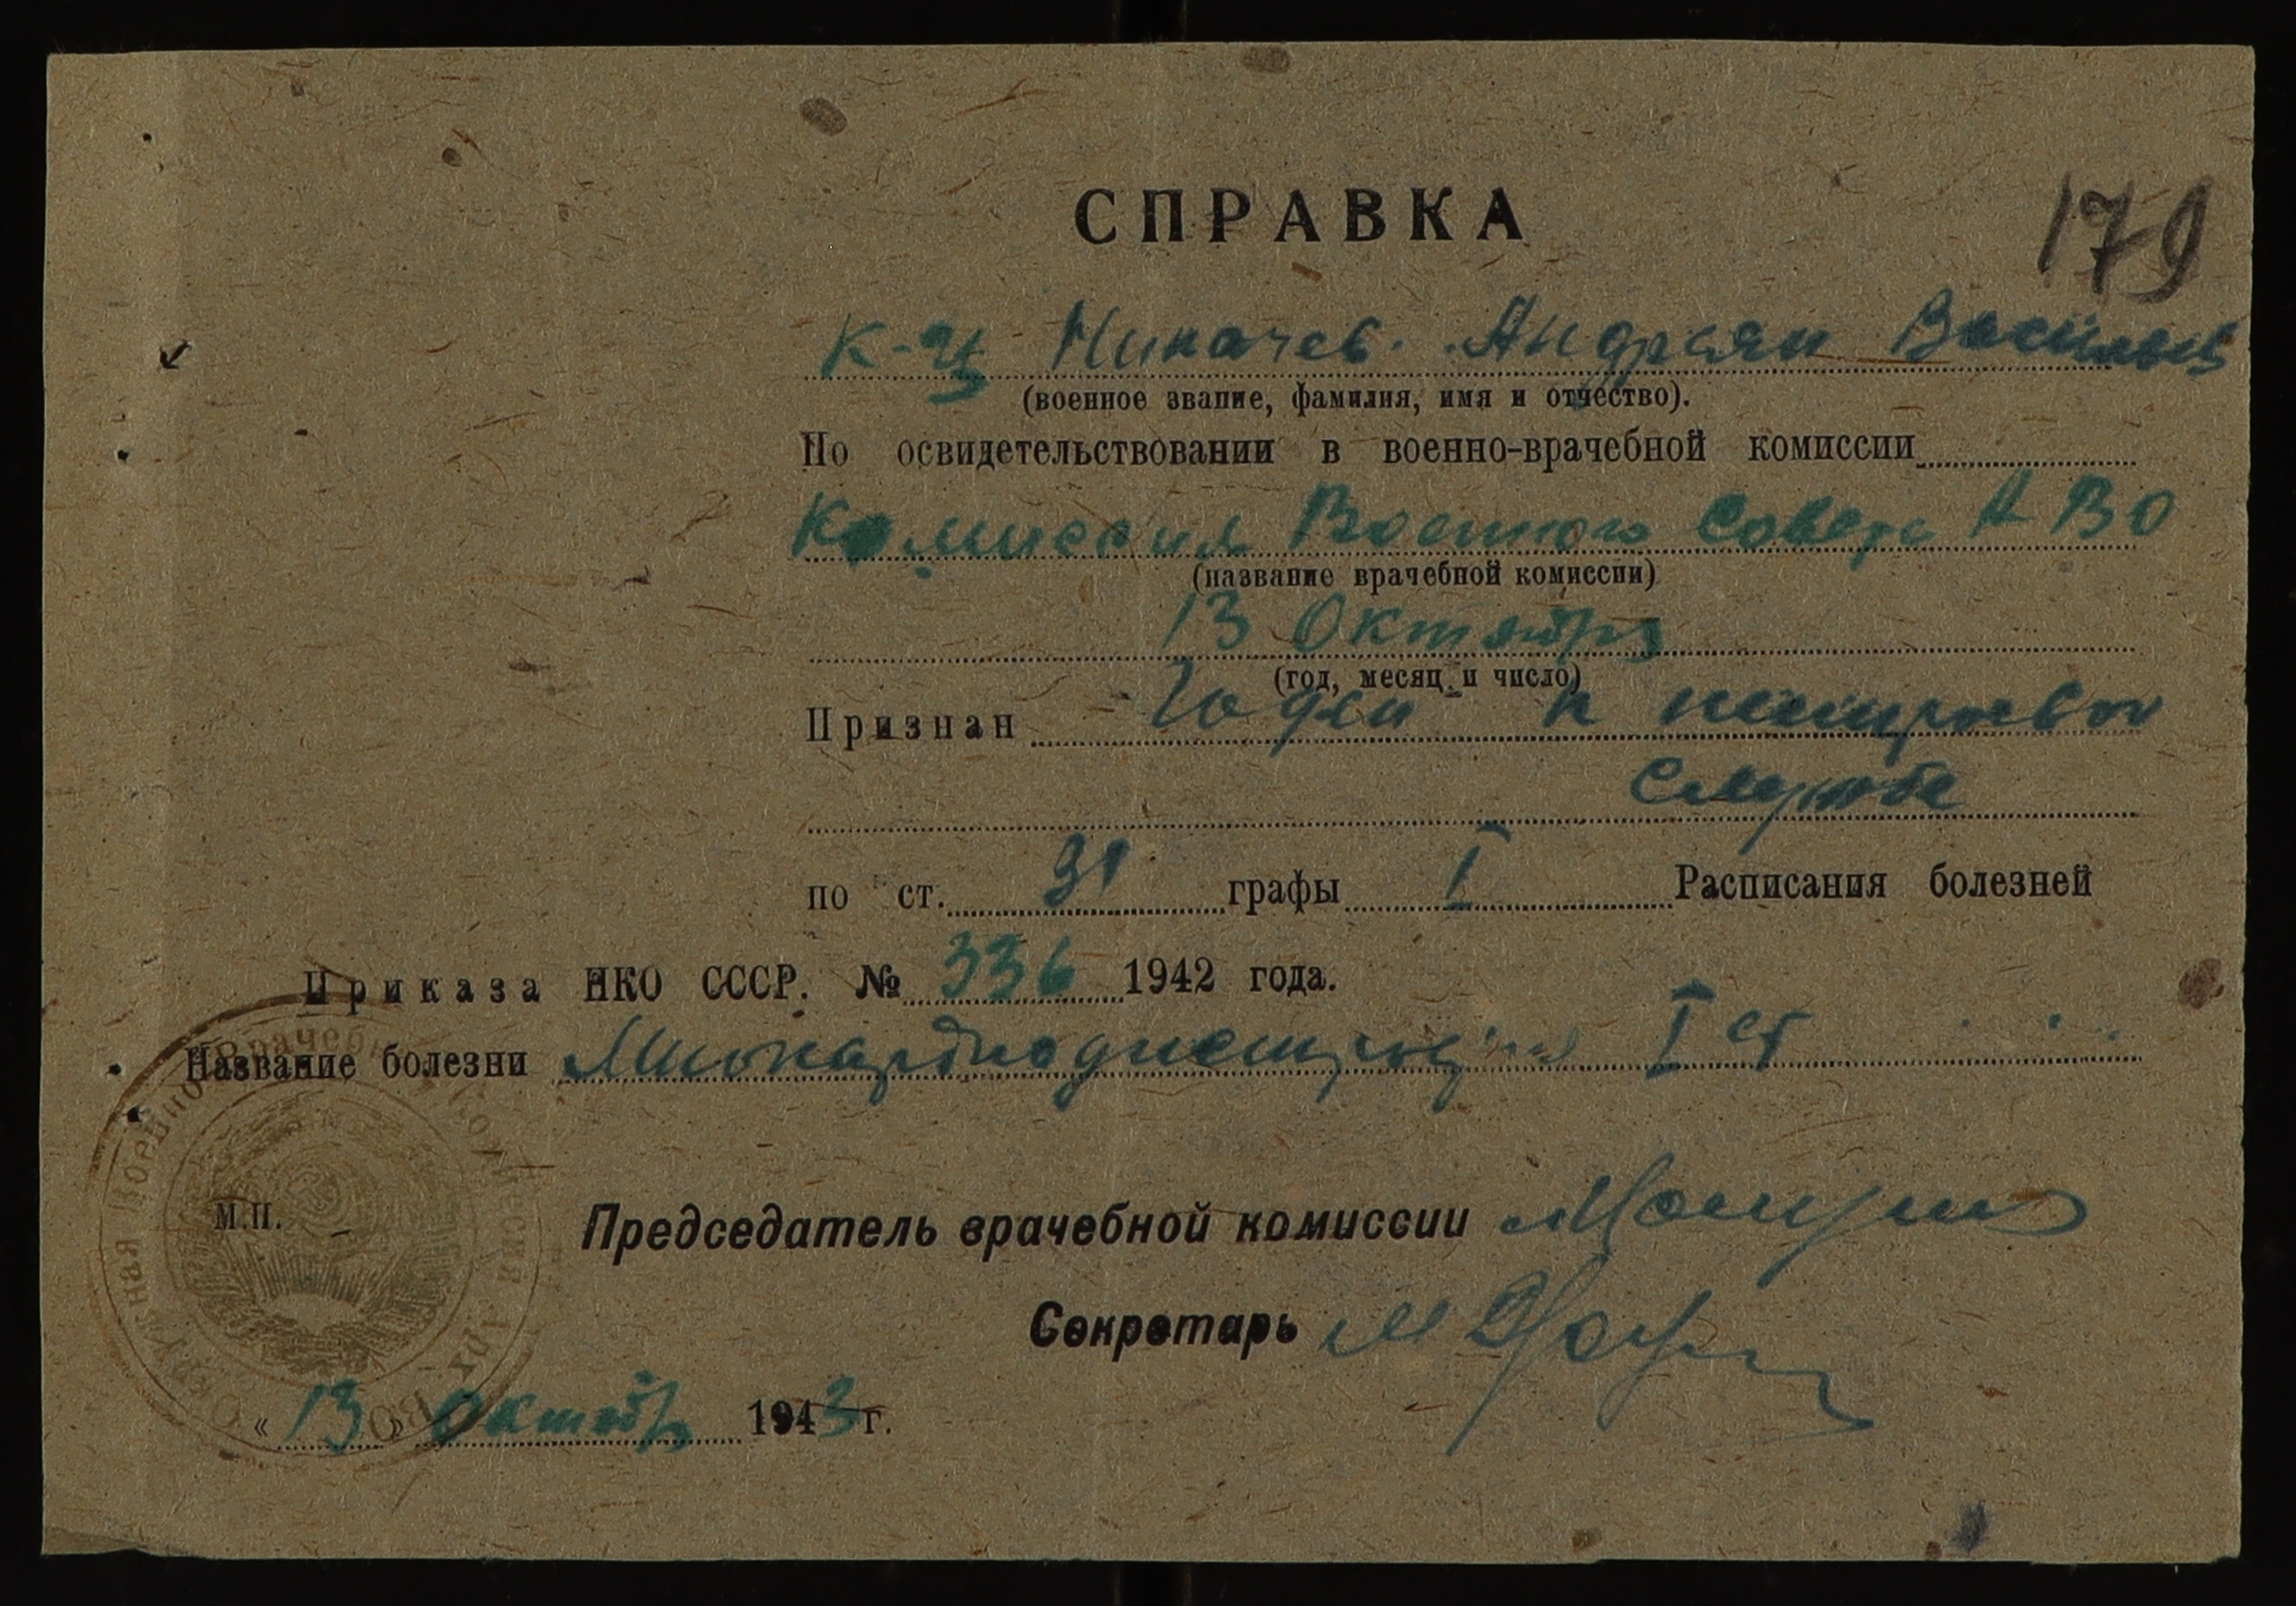 179
СПРАВКА
к-ц Андреян Васильев
(военное звание, фамилия, имя и отчество).
По освидетельствовании в военно-врачебной комиссии
Комиссия Военного Совета АВО
(название врачебной комиссии)
13 Октября
(год, месяц и число)
Признан Годен к нестроевой
службе
по ст. 31 графы I Расписания болезней
Приказа НКО СССР. № 336 1942 года.
Название болезни Миокардиодистрофия I ст
Окружная Военно-Врачебная Комиссия Арх. ВО
М.П.
Председатель врачебной комиссии
Секретарь
«13» Октябр 1943 г.